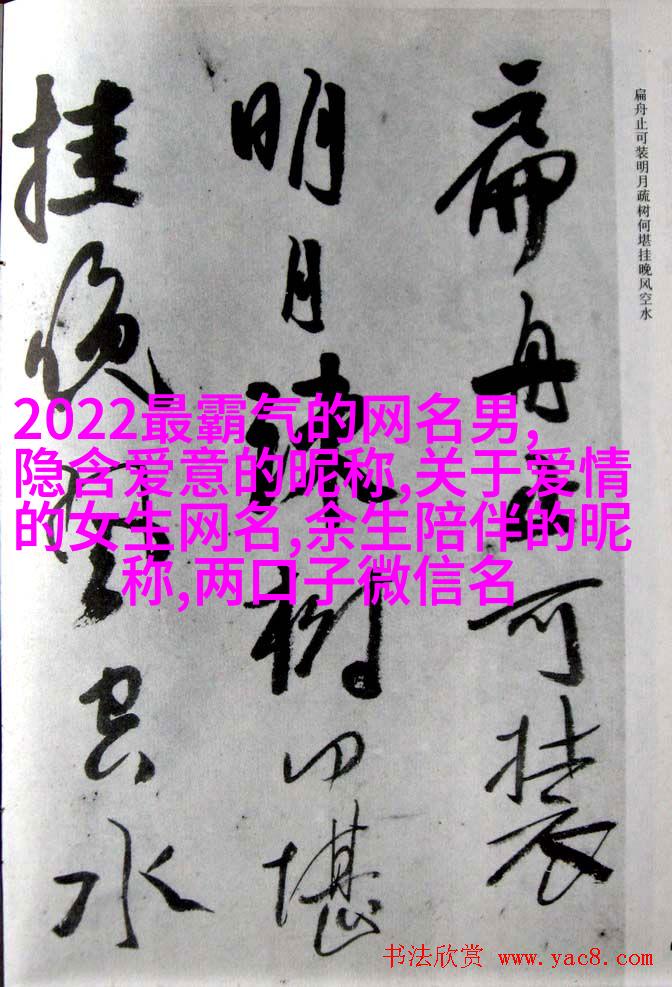 扁舟止可装
明月疏树何堪
挂晚风空水
扁舟止可装明月疏树何堪挂晚风空水
2022最霸气的网名男,
隐含爱意的昵称,关于爱情
的女生网名,余生陪伴的昵
称,两口子微信名
书法欣赏 www.yac8.com